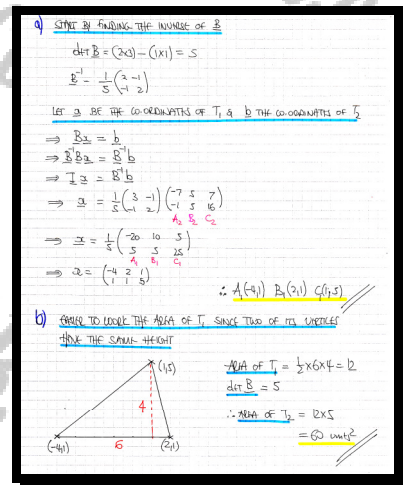 a) START BY FINDING THE INVERSE OF B
det B = (2×3) − (1×1) = 5
B⁻¹ = 1/5 (3 −1
−1 2)
LET x BE THE CO-ORDINATES OF T₁ & b THE CO-ORDINATES OF T₂
⇒ Bx = b
⇒ B⁻¹Bx = B⁻¹b
⇒ Ix = B⁻¹b
⇒ x = 1/5 (3 −1) (−7 5 7)
(−1 2) (−1 5 16)
A₂ B₂ C₂
⇒ x = 1/5 (−20 10 5)
(5 5 25)
A₁ B₁ C₁
⇒ x = (−4 2 1)
(1 1 5)
∴ A₁(−4,1) B₁(2,1) C₁(1,5)
b) EASIER TO WORK THE AREA OF T₁ SINCE TWO OF ITS VERTICES
HAVE THE SAME HEIGHT
(1,5)
4
(−4,1) 6 (2,1)
AREA OF T₁ = ½×6×4 = 12
det B = 5
∴ AREA OF T₂ = 12×5
= 60 units²